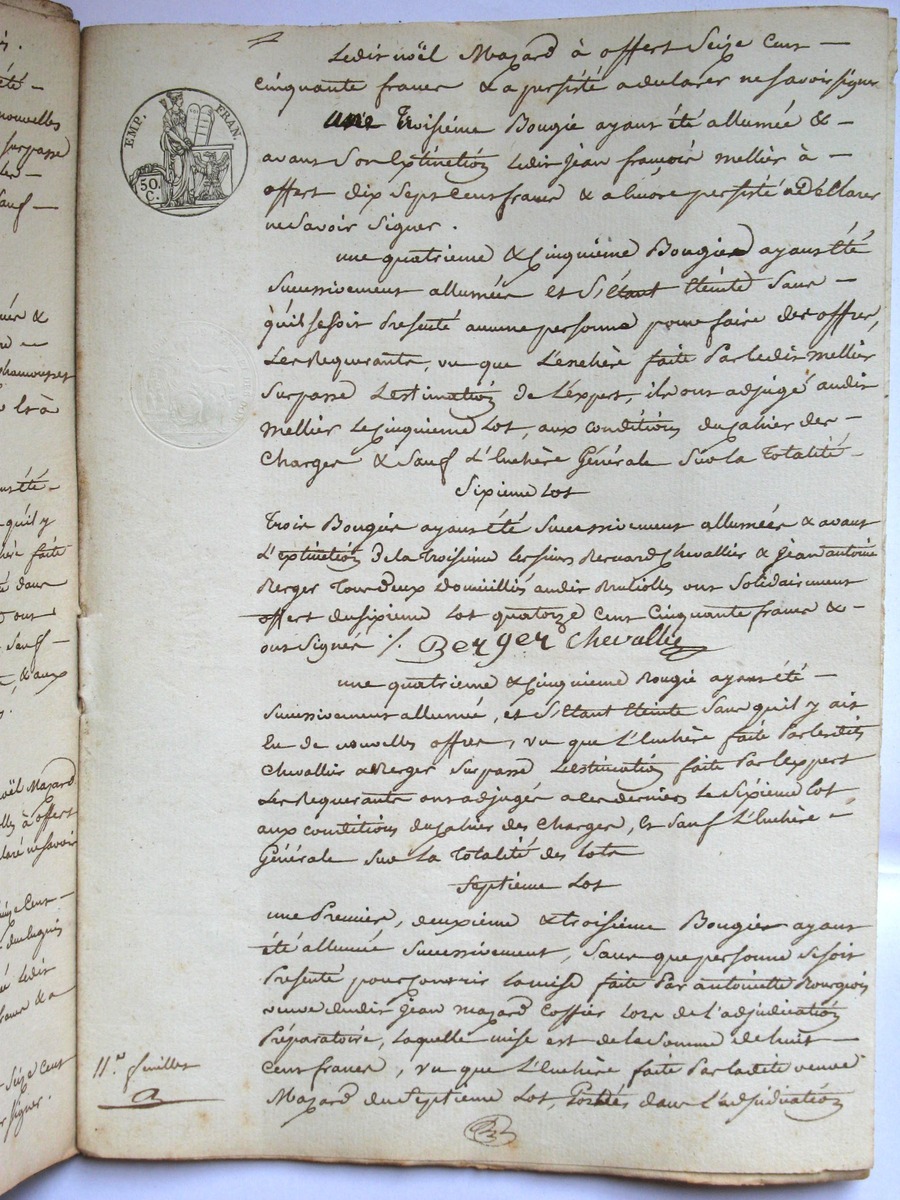 Ledit noël Mazard à offert Seize Cent —
cinquante francs & a persisté a declarer ne savoir signer
une troisième Bougie ayant été allumée & —
avant Son Extinction Ledit jean françois mellier à —
offert dix Sept Cent francs & a encore persisté a Déclarer
ne Savoir Signer.
une quatrieme & Cinquième Bougies ayant Eté
Successivement allumées et S'étant Eteinte Sans —
qu'il se soit Presenté aucune personne pour faire des offres,
Les Requerants, vu que L'enchère faite Par ledit mellier
Surpasse L'estimation de L'expert, ils ont adjugé audit
mellier Le Cinquieme Lot, aux conditions du Cahier des —
Charges & Sauf L'Enchère Générale Sur la Totalité —
Sixieme Lot
Trois Bougies ayant Eté Successivement allumées & avant
L'Extinction De la troisieme les sieurs Bernard Chevallier & jean antoine
Berger Tous deux Domiciliés audit ont Solidairement
offert du sixieme Lot quatorze Cent Cinquante francs & —
ont Signés /. Berger Chevallier
une quatrieme & Cinquieme Bougie ayant été —
Successivement allumée, et S'Etant Eteinte Sans qu'il y ait
Eu de nouvelles offres, vu que L'Enchère faite Par lesdits
Chevallier & Berger Surpasse L'estimation faite Par L'expert
Les Requerants ont adjugés a ces derniers Le Sixieme Lot
aux conditions du Cahier des Charges, Et Sauf L'Enchère —
Générale Sur La Totalité des Lots
Septieme Lot
une Premiere, deuxieme & troisieme Bougies ayant
été allumée Successivement, Sans que personne se soit
Presenté pour couvrir La mise faite Par antoinette Bourgeois
veuve dudit jean mazard Coffier Lors de L'adjudication
Préparatoire, Laquelle mise est de la Somme de huit —
Cent francs, vu que L'Enchère faite Par Ladite veuve
Mazard du Septieme Lot, Portés dans L'adjudication
EMP. FRAN
50. C.
11.e feuillet